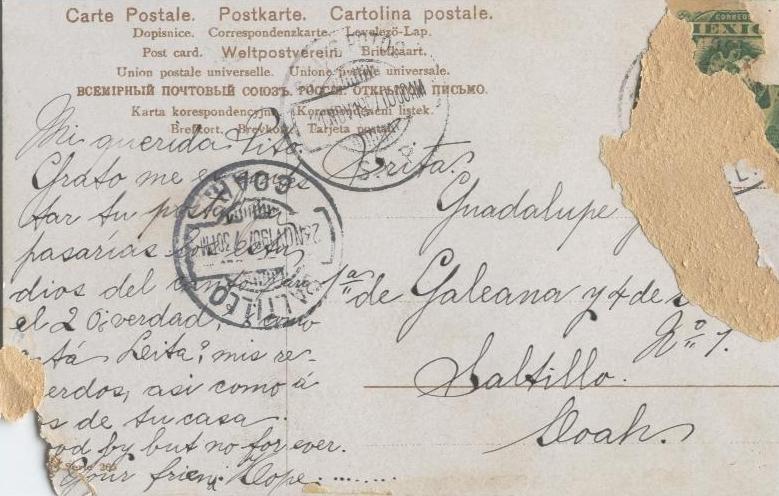 Carte Postale. Postkarte. Cartolina postale.
Dopisnice. Correspondenzkarte. Levelező-Lap.
Post card. Weltpostverein. Briefkaart.
Union postale universelle. Unione postale universale.
ВСЕМІРНЫЙ ПОЧТОВЫЙ СОЮЗЪ. РОССІЯ. ОТКРЫТОЕ ПИСЬМО.
Karta korespondencyjna. Korespondenčni listek.
Brefkort. Brevkort. Tarjeta postal.
CORREOS
MEXICO
Mi querida Tito.
Grato me es
tar tu postal
pasarías
dios del para
el 2 ¿verdad,
Leita? mis re-
erdos, asi como á
s de tu casa.
ood by but no for ever.
Your friend Hope.........
Serie 265
Srita.
Guadalupe
1ª de Galeana y 4 de
Nº 1.
Saltillo.
Coah.
SALTILLO
COAH
24 NOV 1907 30 PM
NOV 190 7 1000AM
S. L. P.